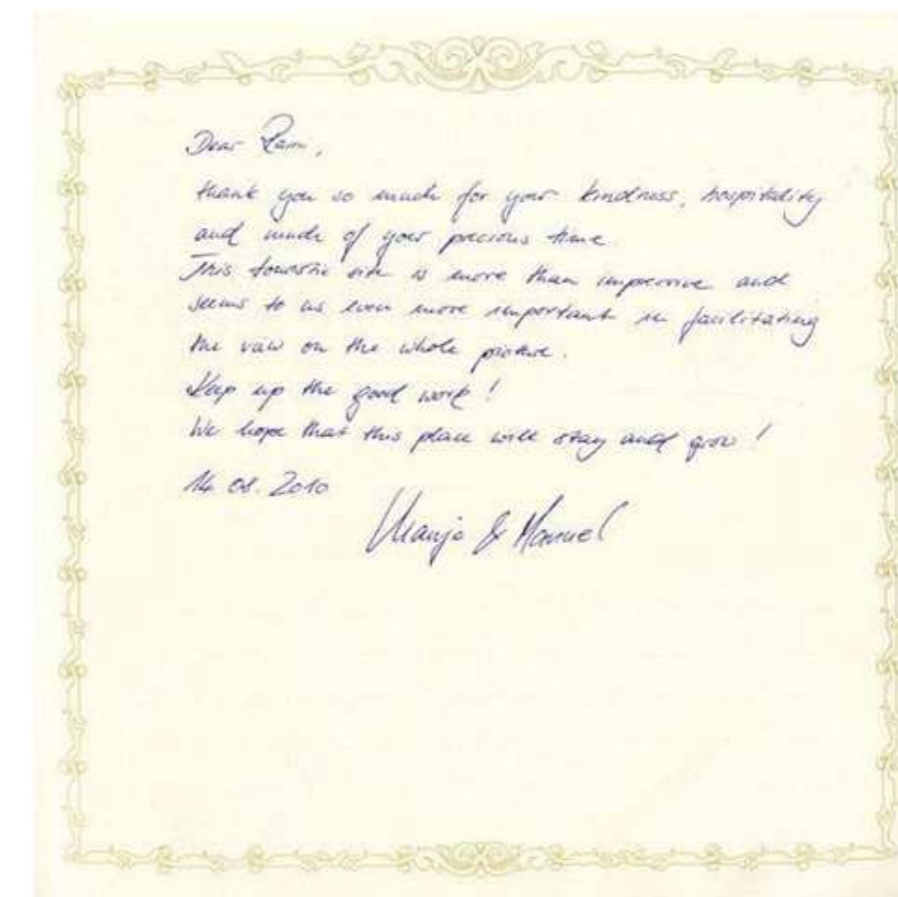 Dear Rami,
thank you so much for your kindness, hospitality
and much of your precious time.
This touristic site is more than impressive and
seems to us even more important in facilitating
the view on the whole picture.
Keep up the good work!
We hope that this place will stay and grow!
14.08.2010
& Manuel